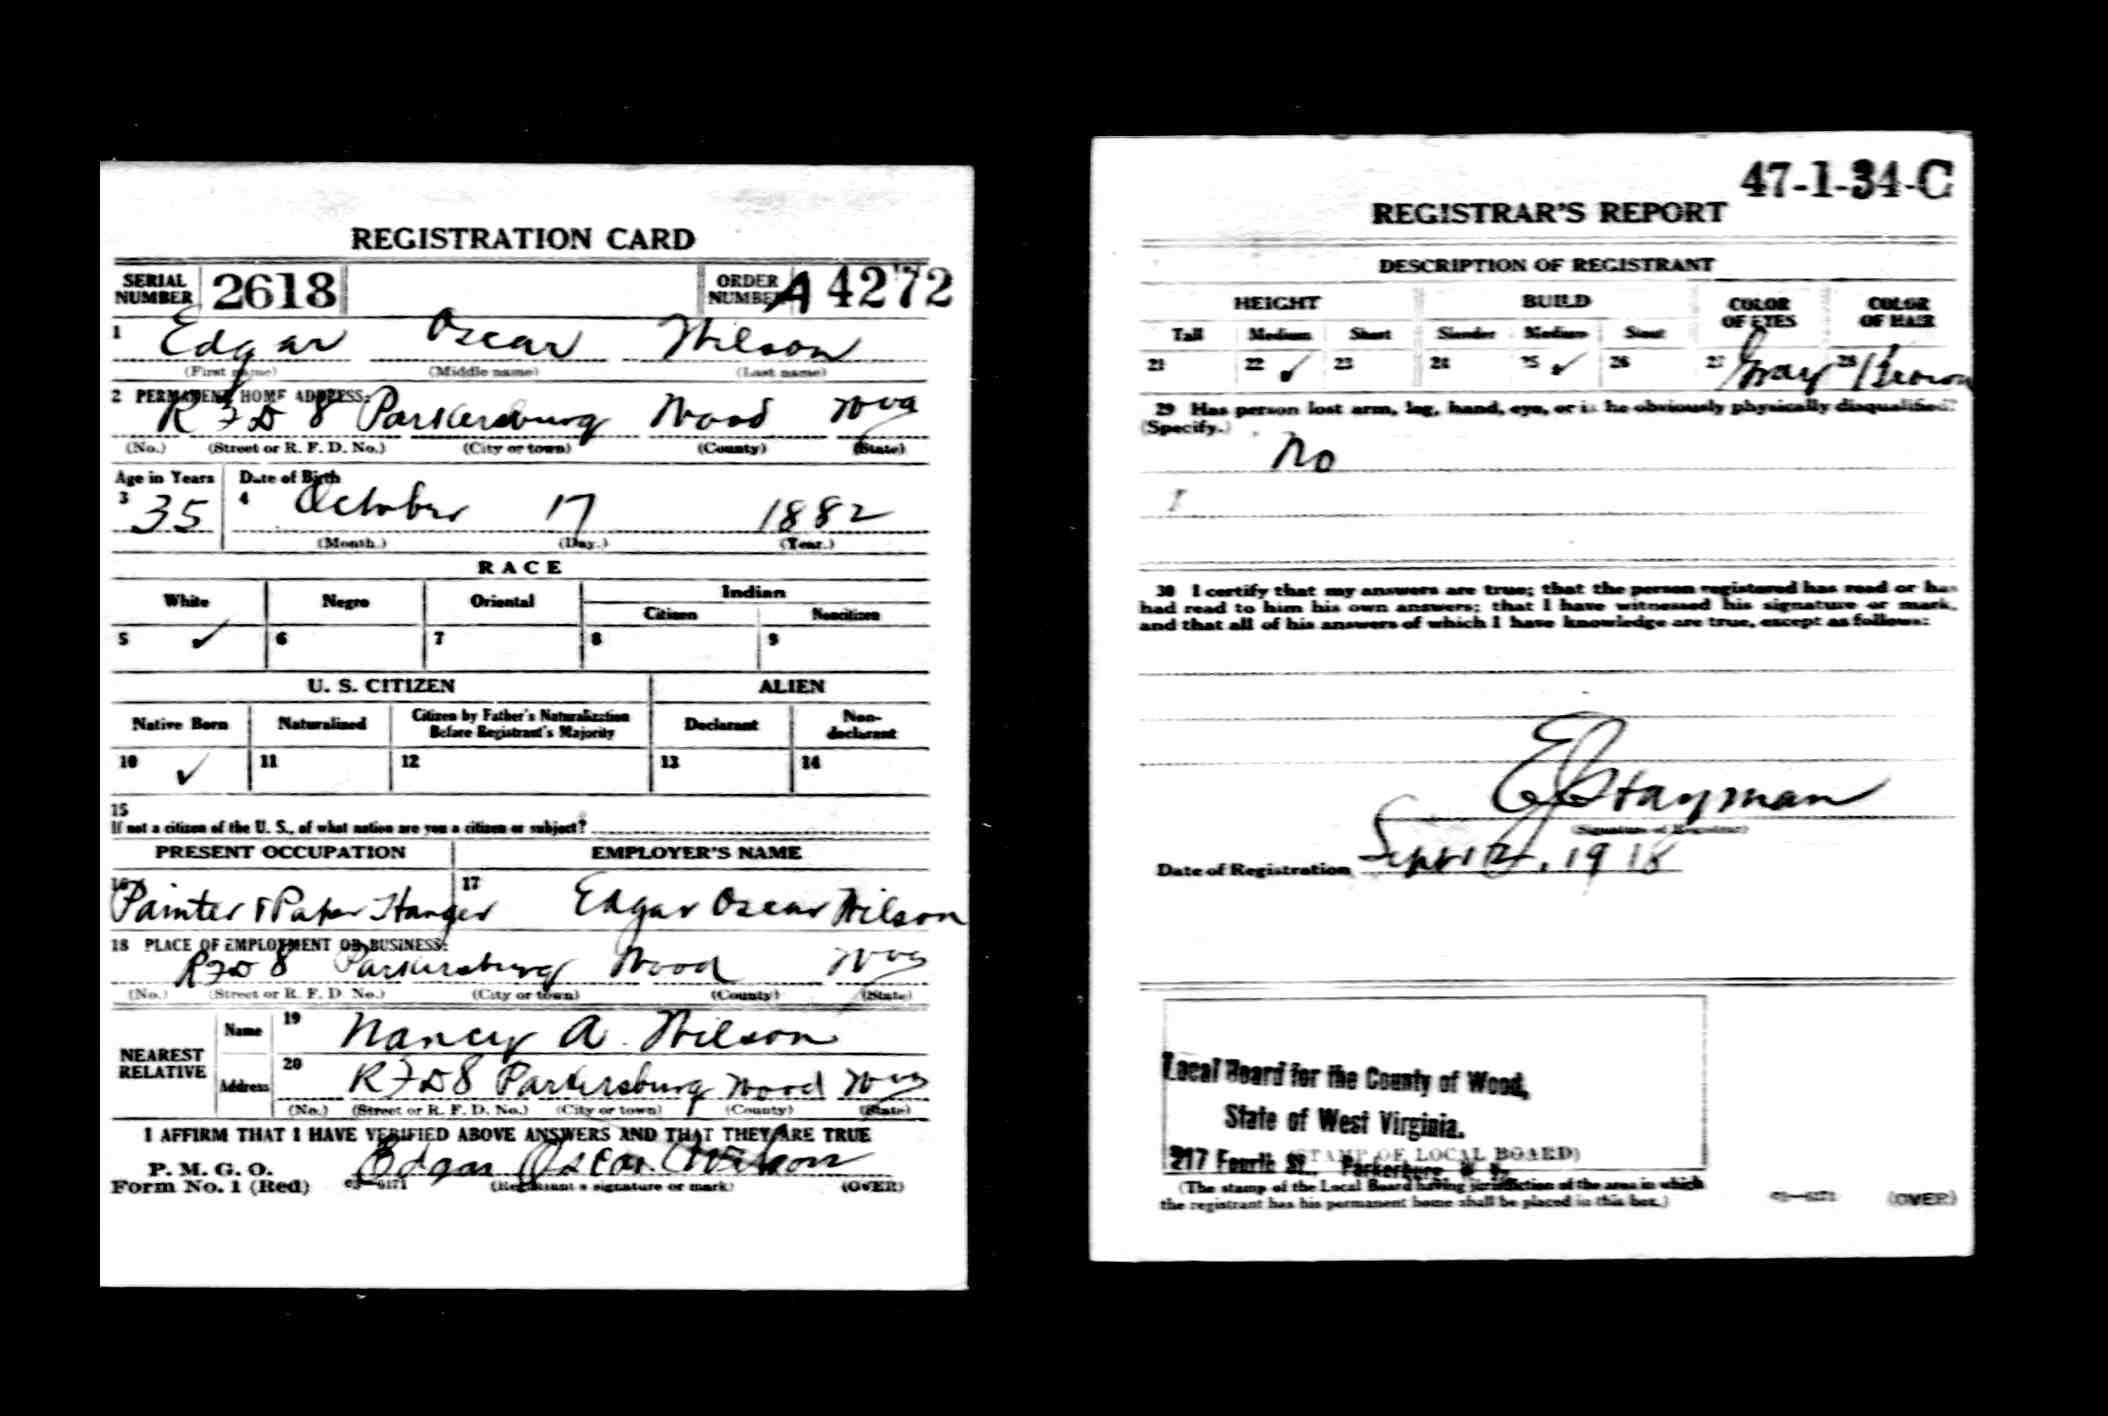 REGISTRATION CARD
SERIAL NUMBER 2618 ORDER NUMBER A 4272
1 Edgar Oscar Wilson
(First name) (Middle name) (Last name)
2 PERMANENT HOME ADDRESS:
R F D 8 Parkersburg Wood W Va
(No.) (Street or R. F. D. No.) (City or town) (County) (State)
Age in Years Date of Birth
3 35 4 October 17 1882
(Month.) (Day.) (Year.)
RACE
White Negro Oriental Indian
Citizen Noncitizen
5 ✓ 6 7 8 9
U. S. CITIZEN ALIEN
Native Born Naturalized Citizen by Father's Naturalization Before Registrant's Majority Declarant Non-declarant
10 ✓ 11 12 13 14
15
If not a citizen of the U. S., of what nation are you a citizen or subject?
PRESENT OCCUPATION EMPLOYER'S NAME
16 Painter & Paper Hanger 17 Edgar Oscar Wilson
18 PLACE OF EMPLOYMENT OR BUSINESS:
R F D 8 Parkersburg Wood W Va
(No.) (Street or R. F. D. No.) (City or town) (County) (State)
NEAREST RELATIVE
Name 19 Nancy A. Wilson
Address 20 R F D 8 Parkersburg Wood W Va
(No.) (Street or R. F. D. No.) (City or town) (County) (State)
I AFFIRM THAT I HAVE VERIFIED ABOVE ANSWERS AND THAT THEY ARE TRUE
P. M. G. O.
Form No. 1 (Red) 03—6171 Edgar Oscar Wilson
(Registrant's signature or mark) (OVER)
47-1-34-C
REGISTRAR'S REPORT
DESCRIPTION OF REGISTRANT
HEIGHT BUILD COLOR OF EYES COLOR OF HAIR
Tall Medium Short Slender Medium Stout
21 22 ✓ 23 24 25 ✓ 26 27 Gray 28 Brown
29 Has person lost arm, leg, hand, eye, or is he obviously physically disqualified?
(Specify.)
No
30 I certify that my answers are true; that the person registered has read or has
had read to him his own answers; that I have witnessed his signature or mark,
and that all of his answers of which I have knowledge are true, except as follows:
Stayman
(Signature of Registrar)
Date of Registration Sept 12, 1918
Local Board for the County of Wood,
State of West Virginia.
217 Fourth St. Parkersburg W. V.
(STAMP OF LOCAL BOARD)
(The stamp of the Local Board having jurisdiction of the area in which
the registrant has his permanent home shall be placed in this box.)
03—6171 (OVER)